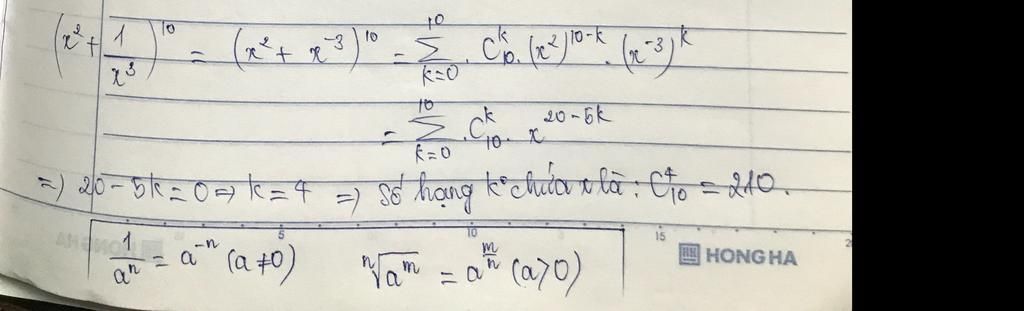 (x² + 1/x³)¹⁰ = (x² + x⁻³)¹⁰ = ∑_{k=0}^{10} . C_{10}^{k} . (x²)^{10-k} . (x⁻³)^{k}
= ∑_{k=0}^{10} . C_{10}^{k} . x^{20-5k}
=> 20 - 5k = 0 => k = 4 => Số hạng k° chứa x là : C_{10}^{4} = 210.
5 10 15
1/aⁿ = a⁻ⁿ (a ≠ 0) ⁿ√(a^m) = a^{m/n} (a > 0) HONG HA